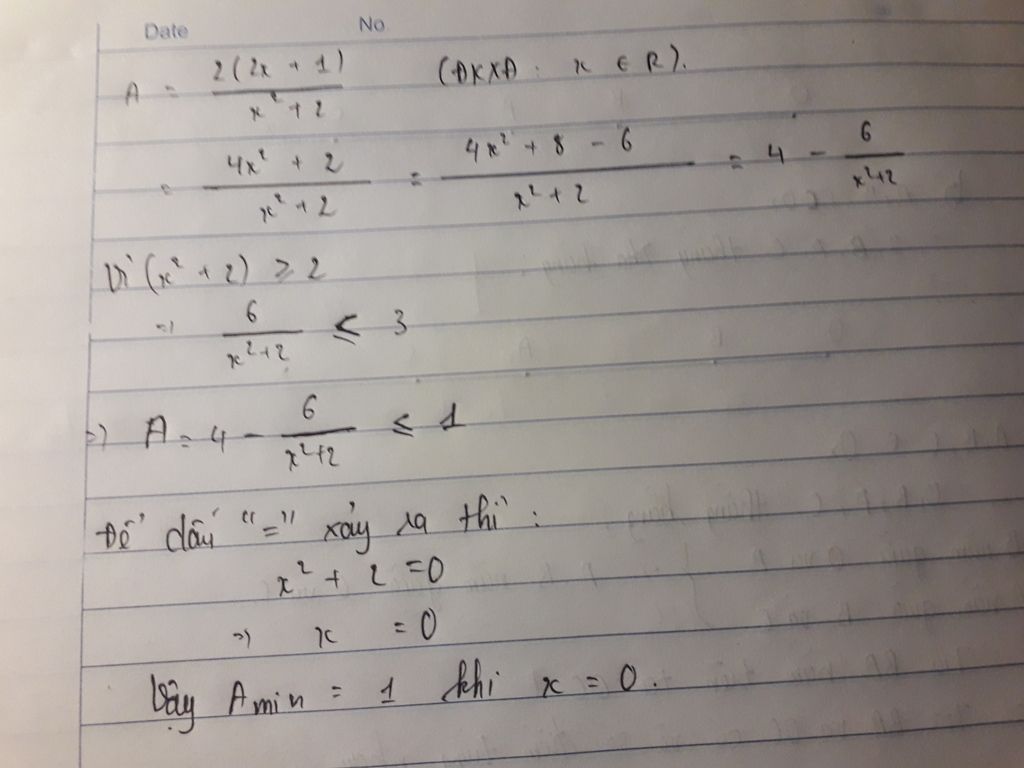 Date No
A = 2(2x + 1) / x² + 2 (ĐKXĐ : x ∈ R).
= 4x² + 2 / x² + 2 = 4x² + 8 - 6 / x² + 2 = 4 - 6 / x²+2
Vì (x² + 2) ≥ 2
=> 6 / x²+2 ≤ 3
=> A = 4 - 6 / x²+2 ≤ 1
Để dấu "=" xảy ra thì :
x² + 2 = 0
=> x = 0
Vậy A min = 1 khi x = 0.